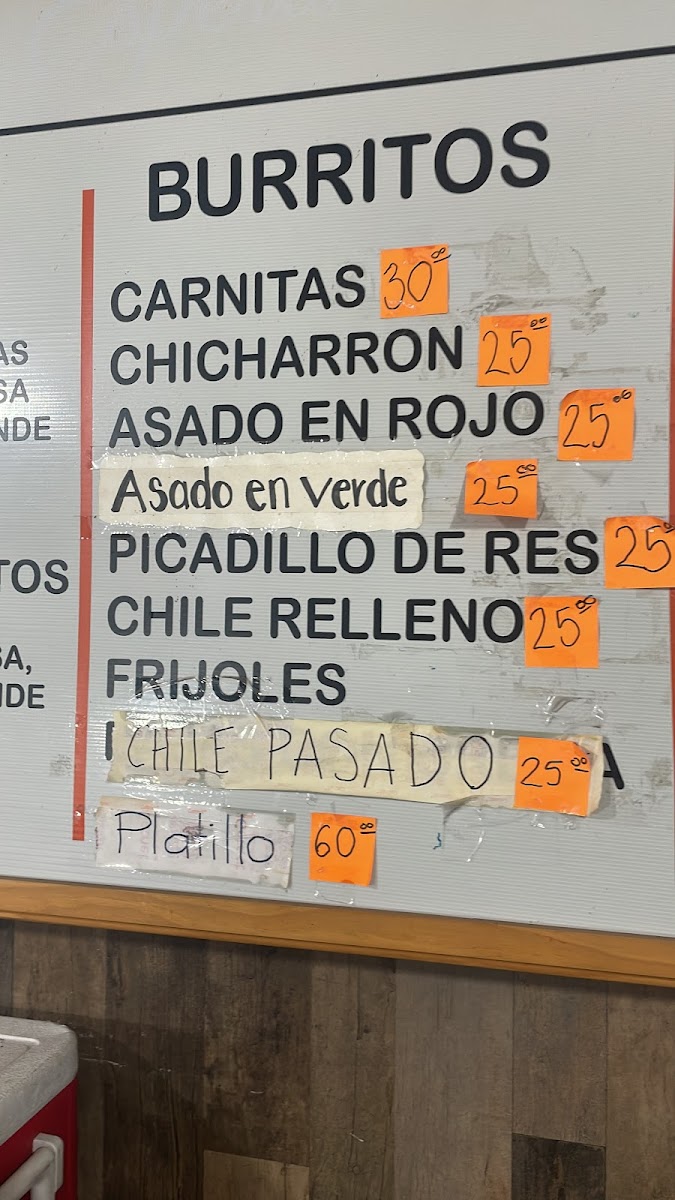 BURRITOS
CARNITAS 30.00
CHICHARRON 25.00
ASADO EN ROJO 25.00
Asado en verde 25.00
PICADILLO DE RES 25.0
CHILE RELLENO 25.00
FRIJOLES
CHILE PASADO 25.00 A
Platillo 60.00
AS
SA
NDE
TOS
SA,
NDE